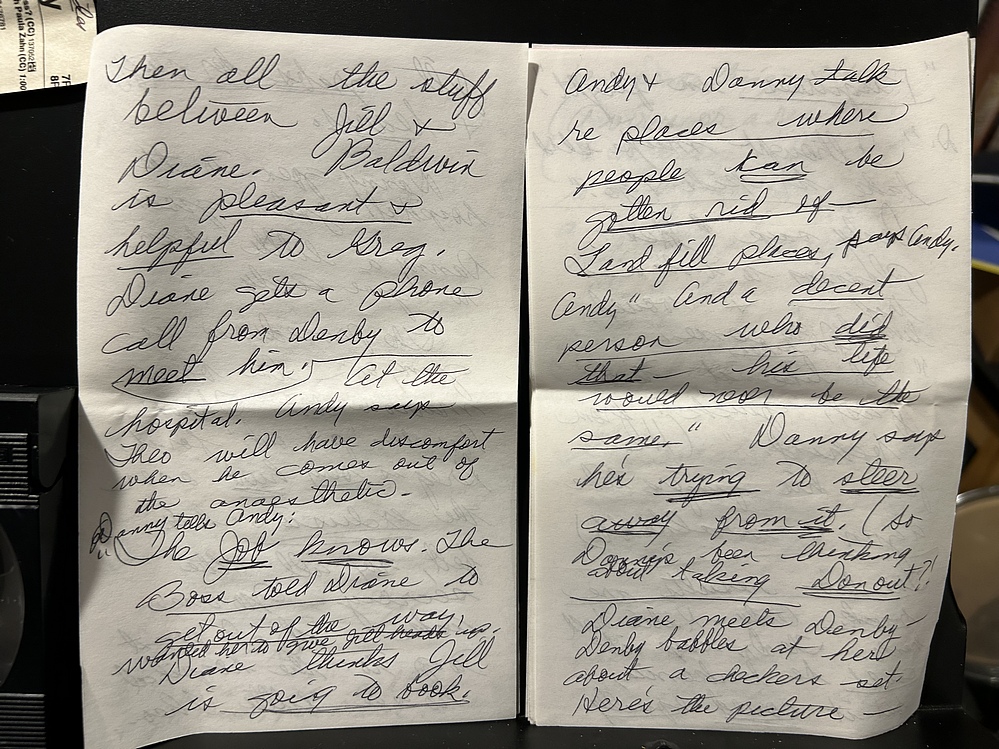 Then all the stuff
between Jill &
Diane. Baldwin
is pleasant &
helpful to Greg.
Diane gets a phone
call from Denby to
meet him. At the
hospital. Andy says
Theo will have discomfort
when he comes out of
the anaesthetic.
Danny tells Andy:
"The Job knows. The
Boss told Diane to
get out of the way,
wanted her to give Jill heads up.
Diane thinks Jill
is going to book.
Andy & Danny talk
re places where
people can be
gotten rid of—
Land fill places, says Andy.
Andy" And a decent
person who did
that — his life
would never be the
same." Danny says
he's trying to steer
away from it. (So
Danny's been thinking
about taking Don out?!
Diane meets Denby—
Denby babbles at her
about a checkers set.
Here's the picture —
7P
8P
ss? (CC) 137052
h Paula Zahn (CC) 1:00